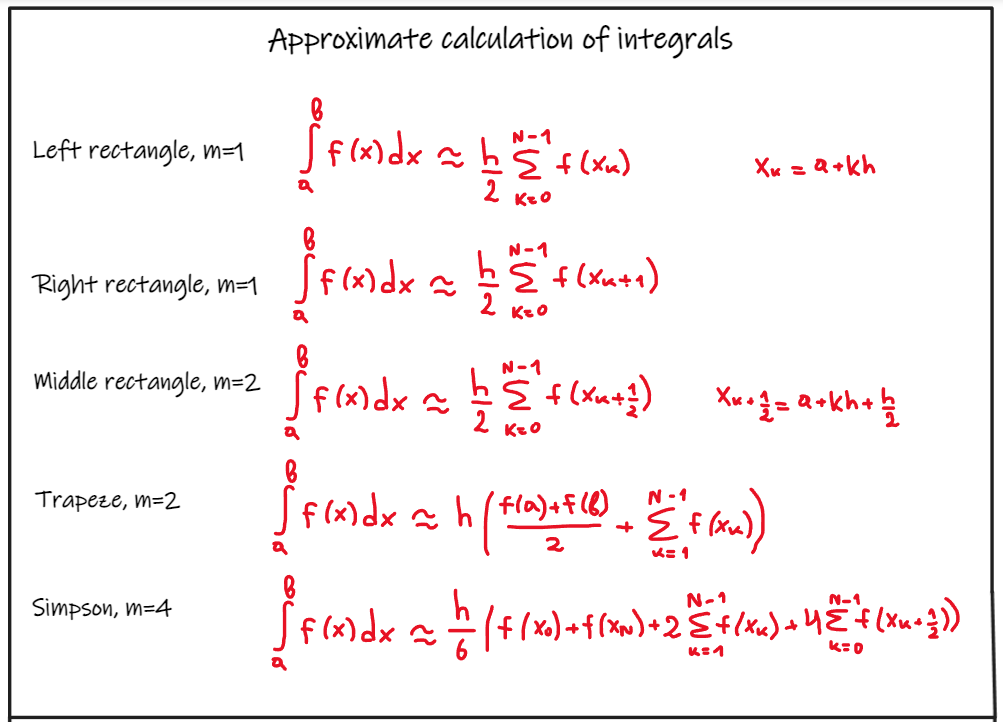 Approximate calculation of integrals
Left rectangle, m=1 ∫ₐᵇ f(x)dx ≈ h/2 ∑ₖ₌₀ᴺ⁻¹ f(xₖ) xₖ = a+kh
Right rectangle, m=1 ∫ₐᵇ f(x)dx ≈ h/2 ∑ₖ₌₀ᴺ⁻¹ f(xₖ₊₁)
Middle rectangle, m=2 ∫ₐᵇ f(x)dx ≈ h/2 ∑ₖ₌₀ᴺ⁻¹ f(x_{k+1/2}) x_{k+1/2} = a+kh+h/2
Trapeze, m=2 ∫ₐᵇ f(x)dx ≈ h((f(a)+f(b))/2 + ∑ₖ₌₁ᴺ⁻¹ f(xₖ))
Simpson, m=4 ∫ₐᵇ f(x)dx ≈ h/6 (f(x₀)+f(x_N)+2∑ₖ₌₁ᴺ⁻¹ f(xₖ)+4∑ₖ₌₀ᴺ⁻¹ f(x_{k+1/2}))